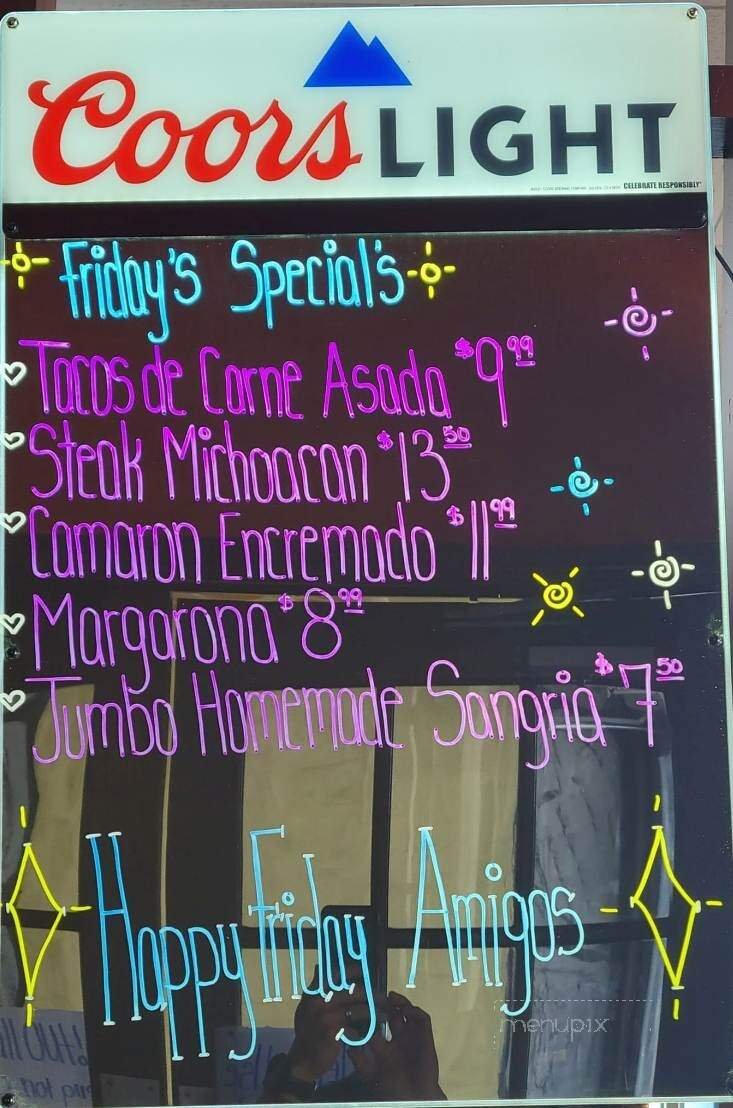 Coors LIGHT
CELEBRATE RESPONSIBLY®
Friday's Special's
Tacos de Carne Asada $9.99
Steak Michoacan $13.50
Camaron Encremado $11.99
Margarona $8.99
Jumbo Homemade Sangria $7.50
Happy Friday Amigos
menupix